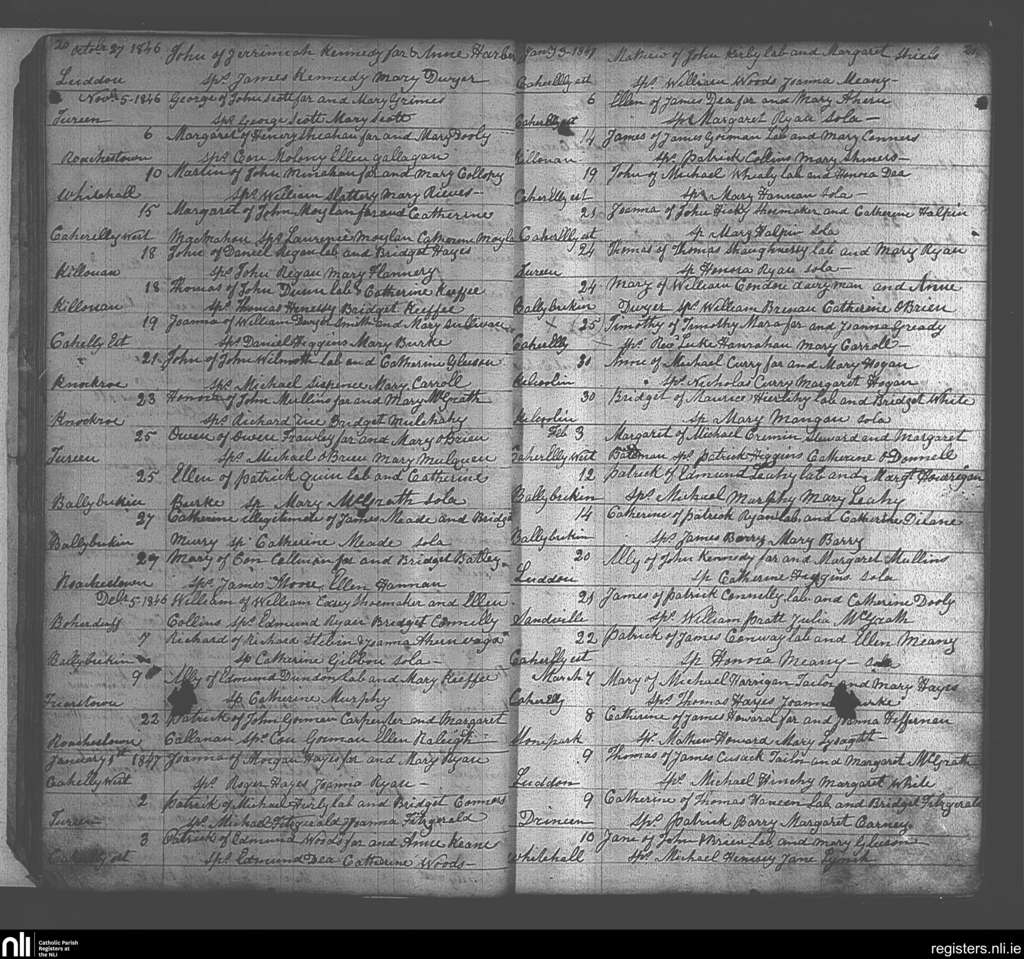 20 Octobr 27 1846 John of Jerrimiah Kennedy far & Anne Harber
Luddon sps James Kennedy Mary Dwyer
Novr 5-1846 George of John Scott far and Mary Grimes
Tureen sps George Scott Mary Scott
6 Margaret of Henery Sheahan far and Mary Dooly
Roachestown sps Con Molony Ellen Gallagan
10 Martin of John Minahan far and Mary Collopy
Whitehall sps William Slattery Mary Rieves-
15 Margaret of John Moylan far and Catherine
Caherelly West MacMahon sps Laurence Moylan Catherine Moylan
18 John of Daniel Regan lab and Bridget Hayes
Killonan sps John Regan Mary Flannery
18 Thomas of John Dunn lab & Catherine Keeffee
Killonan sps Thomas Henessy Bridget Keeffee
19 Joanna of William Dwyer Smith and Mary Sullivan
Cahelly Est sps Daniel Higgins Mary Burke
21 John of John Wilmoth lab and Catherine Gleeson
Knockroe sps Michael Sispence Mary Carroll
23 Honora of John Mullins far and Mary McGrath
Knockroe sps Richard Bridget Mulchahy
25 Owen of Owen Frawley far and Mary O'Brien
Tureen sps Michael O'Brien Mary Mulquen
25 Ellen of Patrick Quin lab and Catherine
Ballybrikin Burke sp Mary McGrath sola
27 Catherine illegitimate of James Meade and Bridget
Ballybrikin Murry sp Catherine Meade sola
29 Mary of Con Callinan far and Bridget Batley
Roachestown sps James Moore Ellen Hannan
Debr 5 1846 William of William Edey Shoemaker and Ellen
Boherduff Collins sps Edmund Ryan Bridget Connilly
7 Richard of Richard & Joanna Ahern
Ballybrikin sp Catherine Gibbon sola-
9 Ally of Edmund Dundon lab and Mary Keeffee
Friarstown sp Catherine Murphy
22 Patrick of John Gorman Carpenter and Margaret
Roachestown Callanan sps Con Gorman Ellen Raleigh
January 1st 1847 Joanna of Morgan Hayes far and Mary Ryan
Cahelly West sps Roger Hayes Joanna Ryan-
2 Patrick of Michael Hurly lab and Bridget Connors
Tureen sps Michael Fitzgerald Joanna Fitzgerald
3 Patrick of Edmund Woods far and Anne Keane
Cahelly est sps Edmund Dea Catherine Woods-
Jany 3-1847 Mathew of John Kirby lab and Margaret Shiels 21
Caherelly est sps William Woods Joanna Meany-
6 Ellen of James Dea far and Mary Ahern
Caherelly est sp Margaret Ryan sola-
14 James of James Gorman Lab and Mary Conners
Killonan sps Patrick Collins Mary Shiners-
19 John of Michael Whealy lab and Honora Dea
Caherelly est sp Mary Hannan sola-
21 Joanna of John Hicky Shoemaker and Catherine Halpin
Caherelly est sp Mary Halpin sola
24 Thomas of Thomas Shaughnessy lab and Mary Ryan
Tureen sp Honora Ryan sola-
24 Mary of William Condon dairyman and Anne
Ballybrikin Dwyer sps William Brenan Catherine O'Brien
25 Timothy of Timothy Mara far and Joanna Gready
Caherelly sps Revd Luke Hanrahan Mary Carroll
30 Anne of Michael Curry far and Mary Hogan
Kilcoolin sps Nicholas Curry Margaret Hogan
30 Bridget of Maurice Hierlihy lab and Bridget White
Kilcoolin sp Mary Mangan sola
Feb 3 Margaret of Michael Cremin Steward and Margaret
Caherelly West Bateman sps Patrick Higgins Catherine O Donnell
12 Patrick of Edmund Leahy lab and Margt
Ballybrikin sps Michael Murphy Mary Leahy
14 Catherine of Patrick Ryan lab and Catherine Dilane
Ballybrikin sps James Barry Mary Barry
20 Ally of John Kennedy far and Margaret Mullins
Luddon sp Catherine Higgins sola
21 James of Patrick Connelly lab and Catherine Dooly
Sandville sps William Pratt Julia McGrath
22 Patrick of James Conway lab and Ellen Meany
Caherelly est sp Honora Meany- sola
March 7 Mary of Michael Harrigan Tailor and Mary Hayes
Caherelly sps Thomas Hayes Joanna Burke
8 Catherine of James Howard far and Joanna Heffernan
Stonepark sps Mathew Howard Mary Lysaght
9 Thomas of James Cusack Tailor and Margaret McGrath
Luddon sps Michael Hinchy Margaret White
9 Catherine of Thomas Haneen Lab and Bridget Fitzgerald
Drineen sps Patrick Barry Margaret Carney
10 Jane of John O'Brien Lab and Mary Gleeson
Whitehall sps Michael Henesey Jane Lynch
nli Catholic Parish
Registers at
the NLI
registers.nli.ie